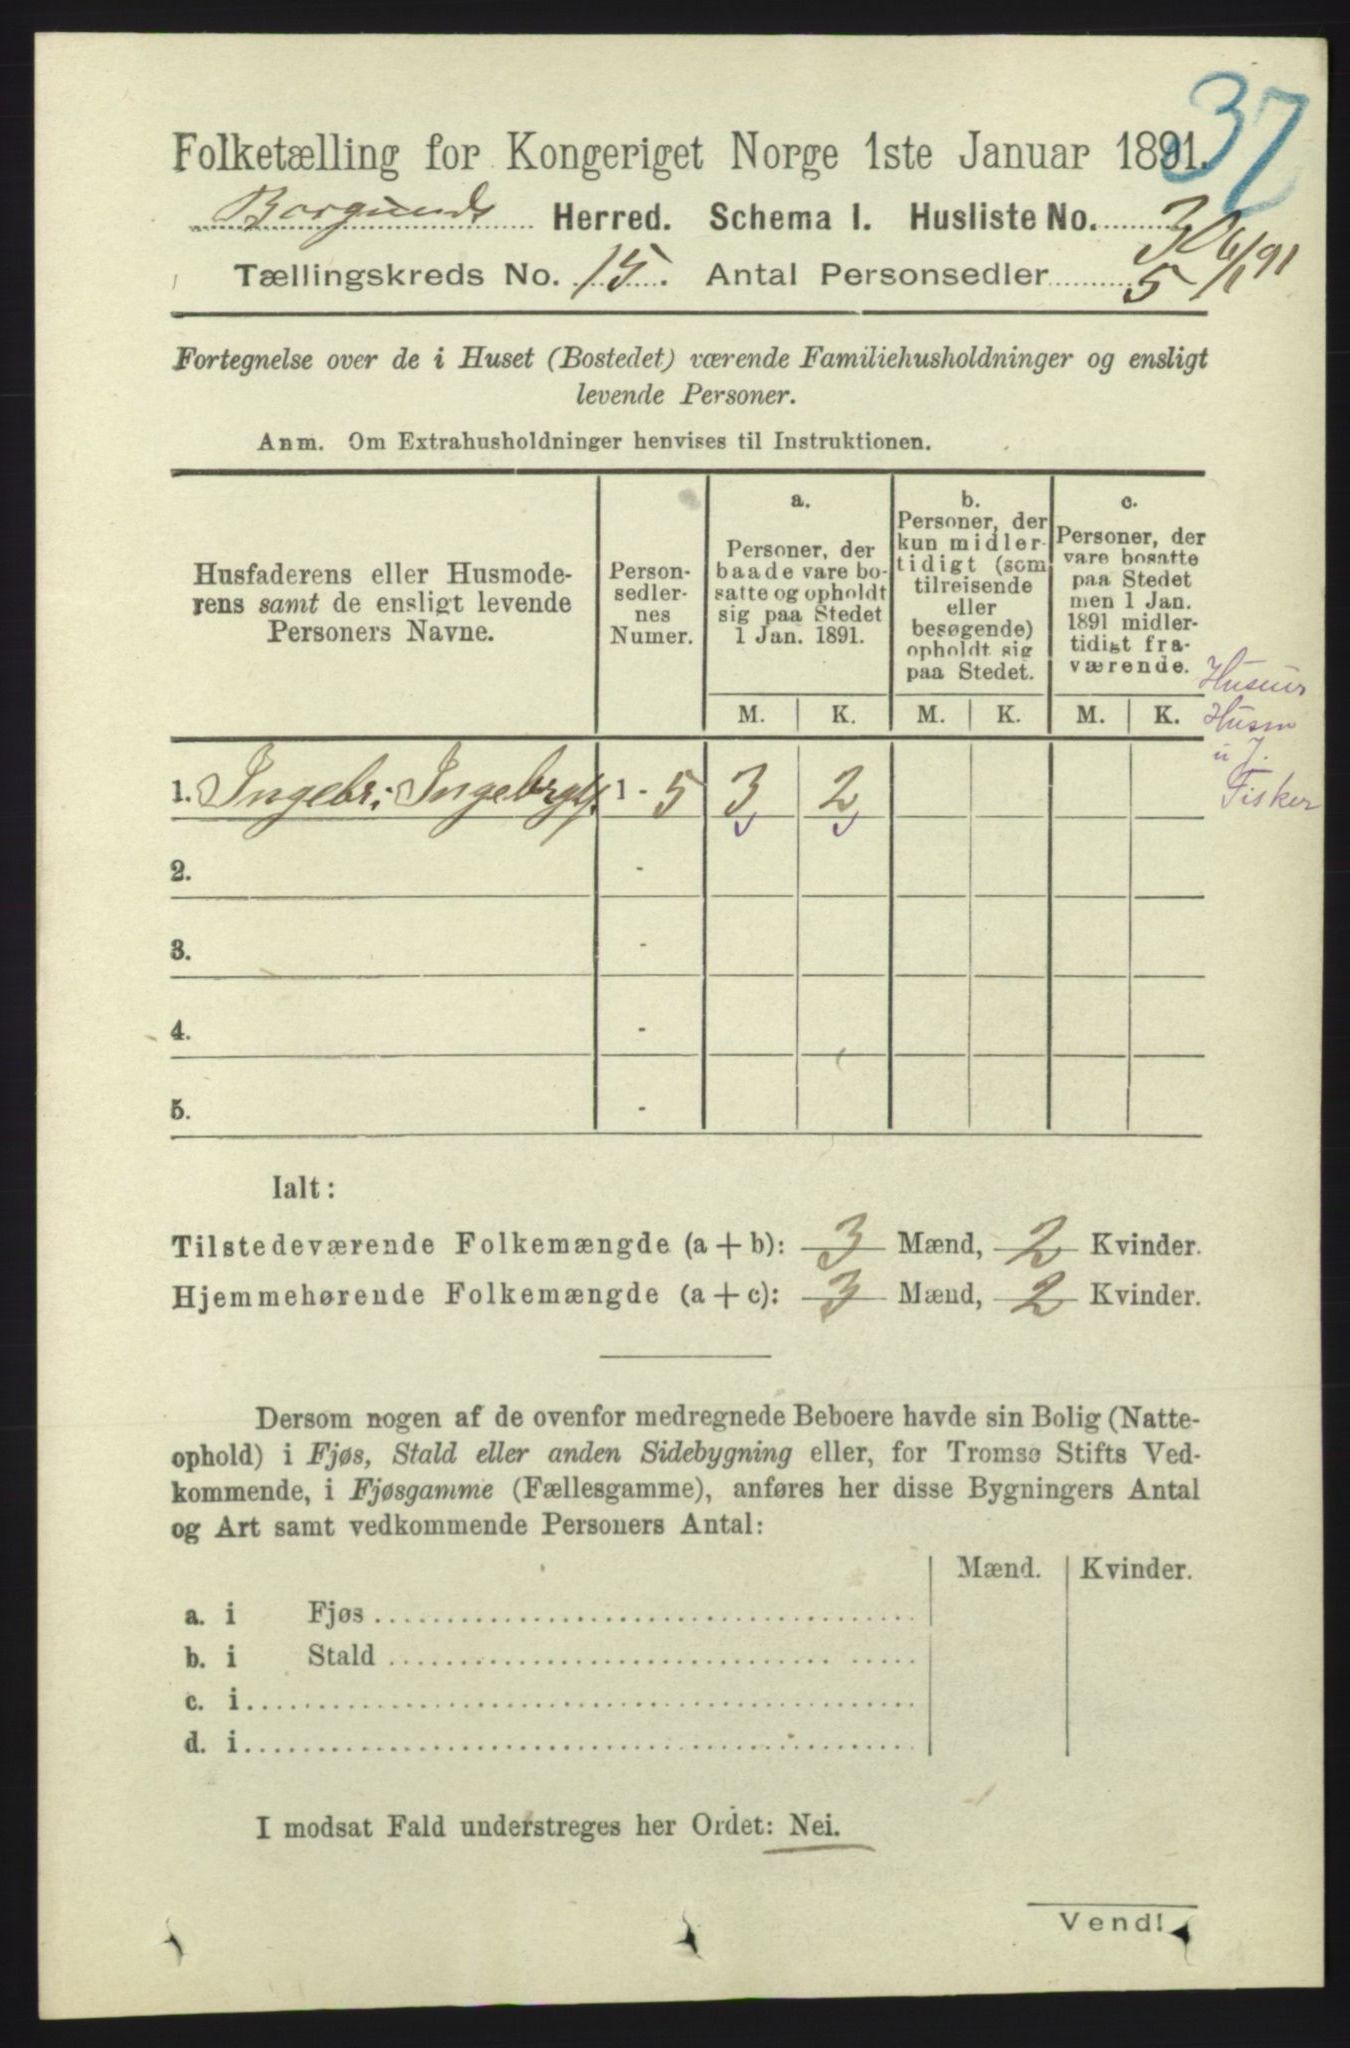 37
Folketælling for Kongeriget Norge 1ste Januar 1891.
Borgunds Herred. Schema I. Husliste No. 30 6/1 91
Tællingskreds No. 15. Antal Personsedler 5
Fortegnelse over de i Huset (Bostedet) værende Familiehusholdninger og ensligt
levende Personer.
Anm. Om Extrahusholdninger henvises til Instruktionen.
Husfaderens eller Husmode-
rens samt de ensligt levende
Personers Navne.
Person-
sedler-
nes
Numer.
a.
Personer, der
baade vare bo-
satte og opholdt
sig paa Stedet
1 Jan. 1891.
b.
Personer, der
kun midler-
tidigt (som
tilreisende
eller
besøgende)
opholdt sig
paa Stedet.
c.
Personer, der
vare bosatte
paa Stedet
men 1 Jan.
1891 midler-
tidigt fra-
værende.
M. K. M. K. M. K.
Husm
u J.
Fisker
1. Ingebr: 1 - 5 3 2
2. -
3. -
4. -
5. -
Ialt:
Tilstedeværende Folkemængde (a + b): 3 Mænd, 2 Kvinder.
Hjemmehørende Folkemængde (a + c): 3 Mænd, 2 Kvinder.
Dersom nogen af de ovenfor medregnede Beboere havde sin Bolig (Natte-
ophold) i Fjøs, Stald eller anden Sidebygning eller, for Tromsø Stifts Ved-
kommende, i Fjøsgamme (Fællesgamme), anføres her disse Bygningers Antal
og Art samt vedkommende Personers Antal:
Mænd. Kvinder.
a. i Fjøs
b. i Stald
c. i
d. i
I modsat Fald understreges her Ordet: Nei.
Vend!